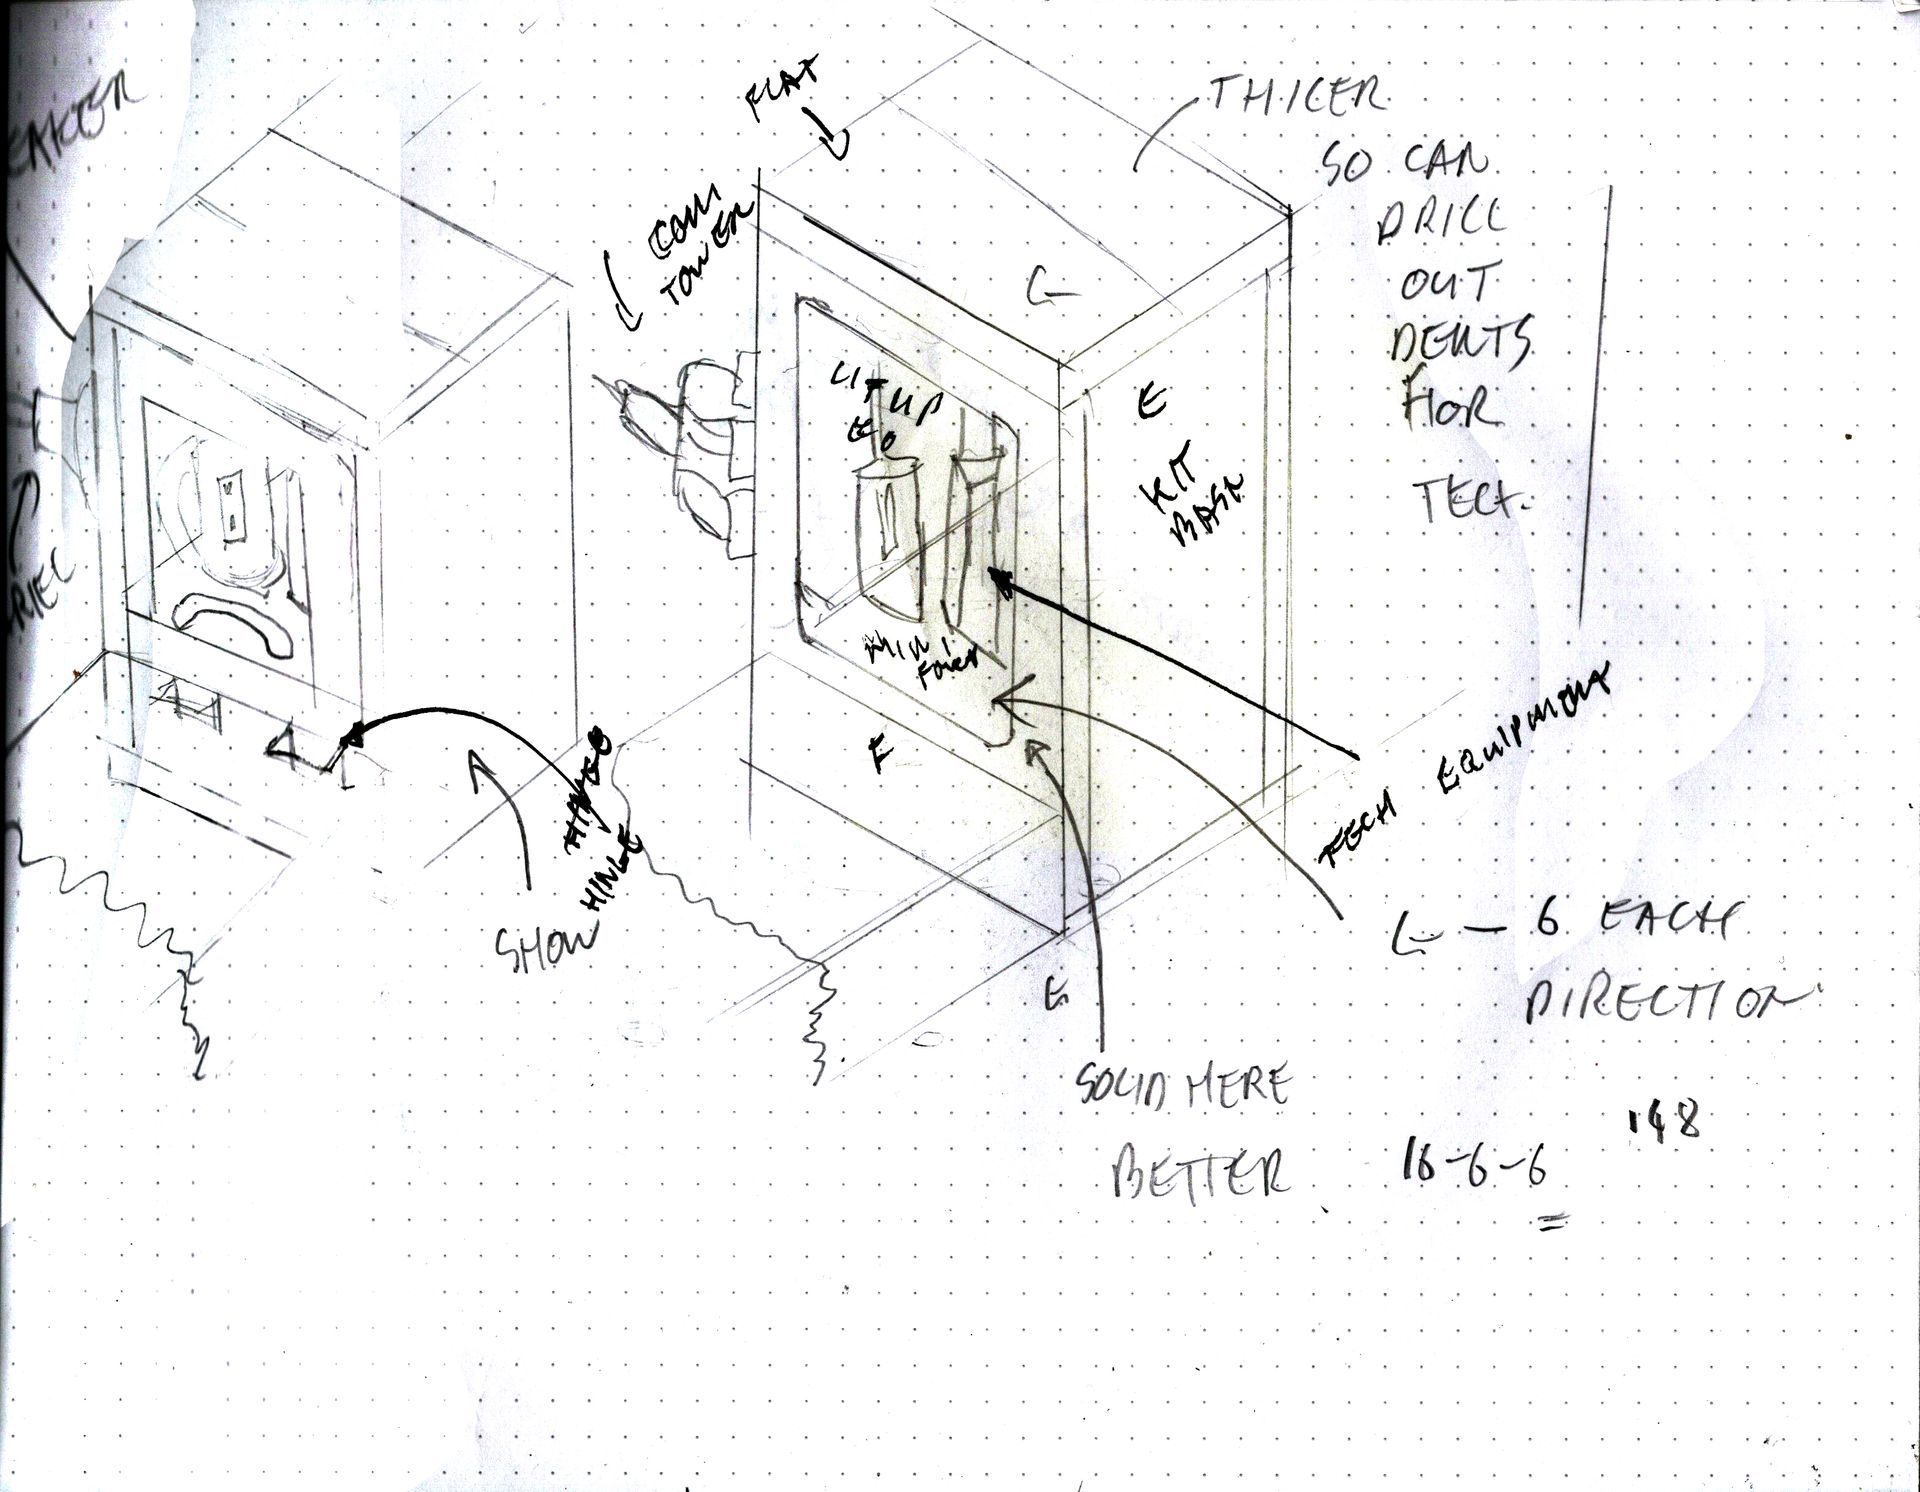 FLAT
THICER
SO CAN
DRILL
OUT
DENTS
FOR
TECH.
COM
TOWER
LIT UP
E
KIT
BASH
MINI
TECH EQUIPMENT
E
HINGE
SHOW
6 EACH
DIRECTION
E
SOLID HERE
BETTER
16-6-6
=
148